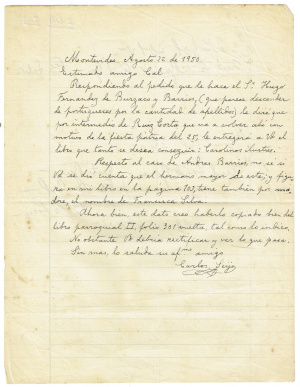 Montevideo, Agosto 12 de 1950.
Estimado amigo Cal
Respondiendo al pedido que le hace el Sr. Hugo
Fernandez de Burzaco y Barrios, (que parece descender
de portugueses por la cantidad de apellidos) le dire que
por intermedio de Ruiz Corto que va a volver aún con
motivo de la fiesta patria del 25, le entregara a Vd el
libro que tanto se desea conseguir: Carolinos Ilustres.
Respecto al caso de Andres Barrios, no se si
Vd se dió cuenta que el hermano mayor de este, y figu
ra en mi libro en la pagina 103, tiene tambien por ma
dre, el nombre de Francisca Silva.
Ahora bien este dato creo haberlo copiado bien del
libro parroquial II, folio 301 vuelta, tal como lo indico.
No obstante Vd debria rectificar y ver lo que pasa.
Sin mas, lo saluda su afmo. amigo
Carlos Seijo